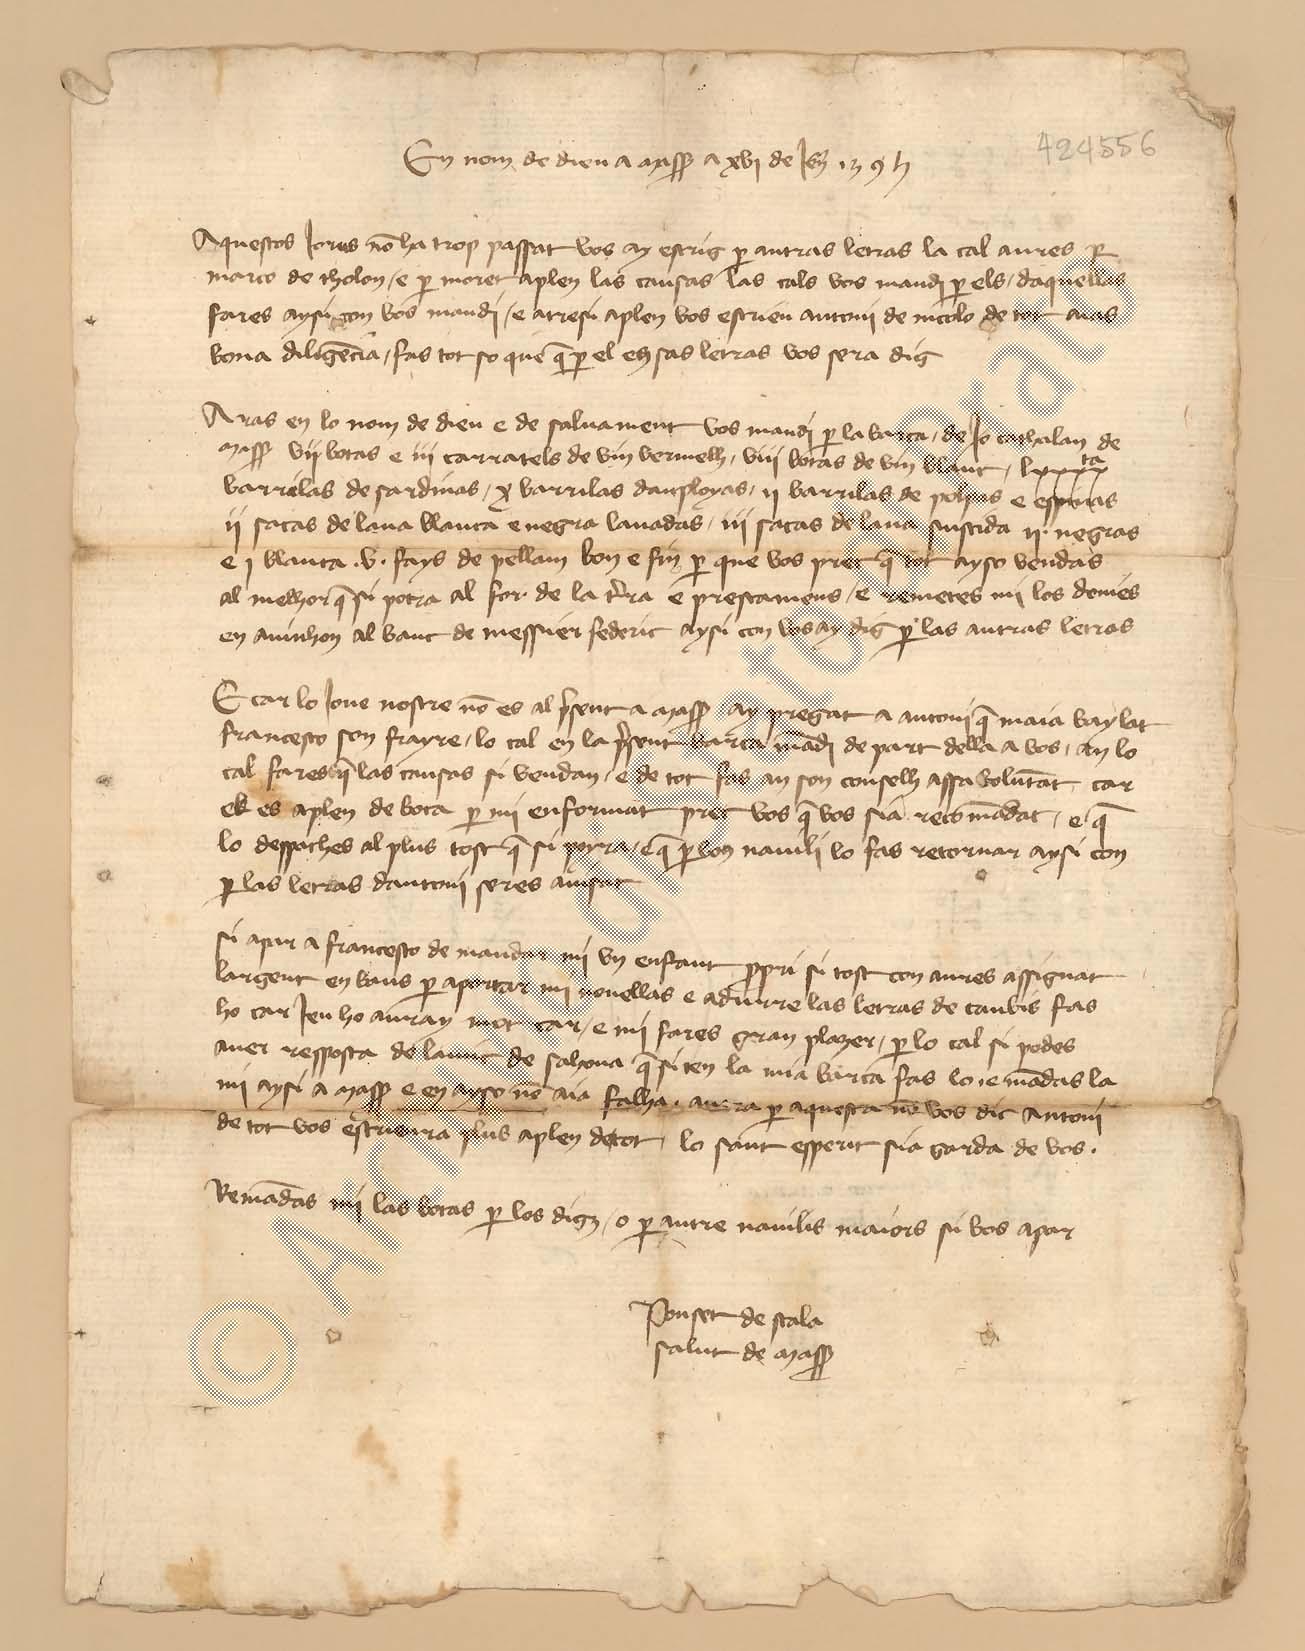 424556
En nom de dieu a a xvi de
Aquestos Jorns no ha trop passat vos ay escrig per autras letras la cal aures per
marco de tholon / e per moret aplen las causas las cals vos mandi per els / daquellas
fares aysi con vos mandi / e atresi aplen vos escrieu antoni de nicolo de tot aias
bona diligencia / fas tot so que per el en sas letras vos sera dig
Aras en lo nom de dieu e de salvament vos mandi per la barca / de Jo cathalan de
vii botas e iii carratels de vin vermelh / viii botas de vin blanc / lxxxx ta
barrilas de sardinas / x barrilas / ii barrilas de e
ii sacas de lana blanca e negra lavadas / iii sacas de lana suscida ii negras
e j blanca .v. fays de pellam bon e fin per que vos prec que tot ayso vendas
al melhor que si potra al for de la terra e prestamens / e remetes mi los deniers
en avinhon al banc de messier federic aysi con vos ay dig per las autras letras
E car lo Jove nostre no es al present a ay pregat a antoni que m aia baylat
francesco son frayre / lo cal en la present barca mandi de part della a vos / an lo
cal fares que las causas si vendan / e de tot fas an son conselh assa voluntat car
el es aplen de boca per mi enformat prec vos que vos sia recomandat / e que
lo despaches al plus tost que si porra / e que per bon navili lo fas retornar aysi con
per las letras dantoni seres avisat
si apar a francesco de mandar mi un enfant propri si tost con aures assignat
largent en bans per aportar mi novellas e adurre las letras de canbis fas
ho car Jeu ho auray mot car / e mi fares gran plazer / per lo cal si podes
aver resposta de de sahona que si ten la mia barca fas lo e mandas la
mi aysi a e en ayso no aia falha . per aquesta no vos dic antoni
de tot vos escrieura plus aplen de tot / lo sant esperit sia garda de vos .
Remandas mi las botas per los digz / o per autre navilis maiors si vos apar
Ponset de scala
salut de
© Archivio di Stato di Prato